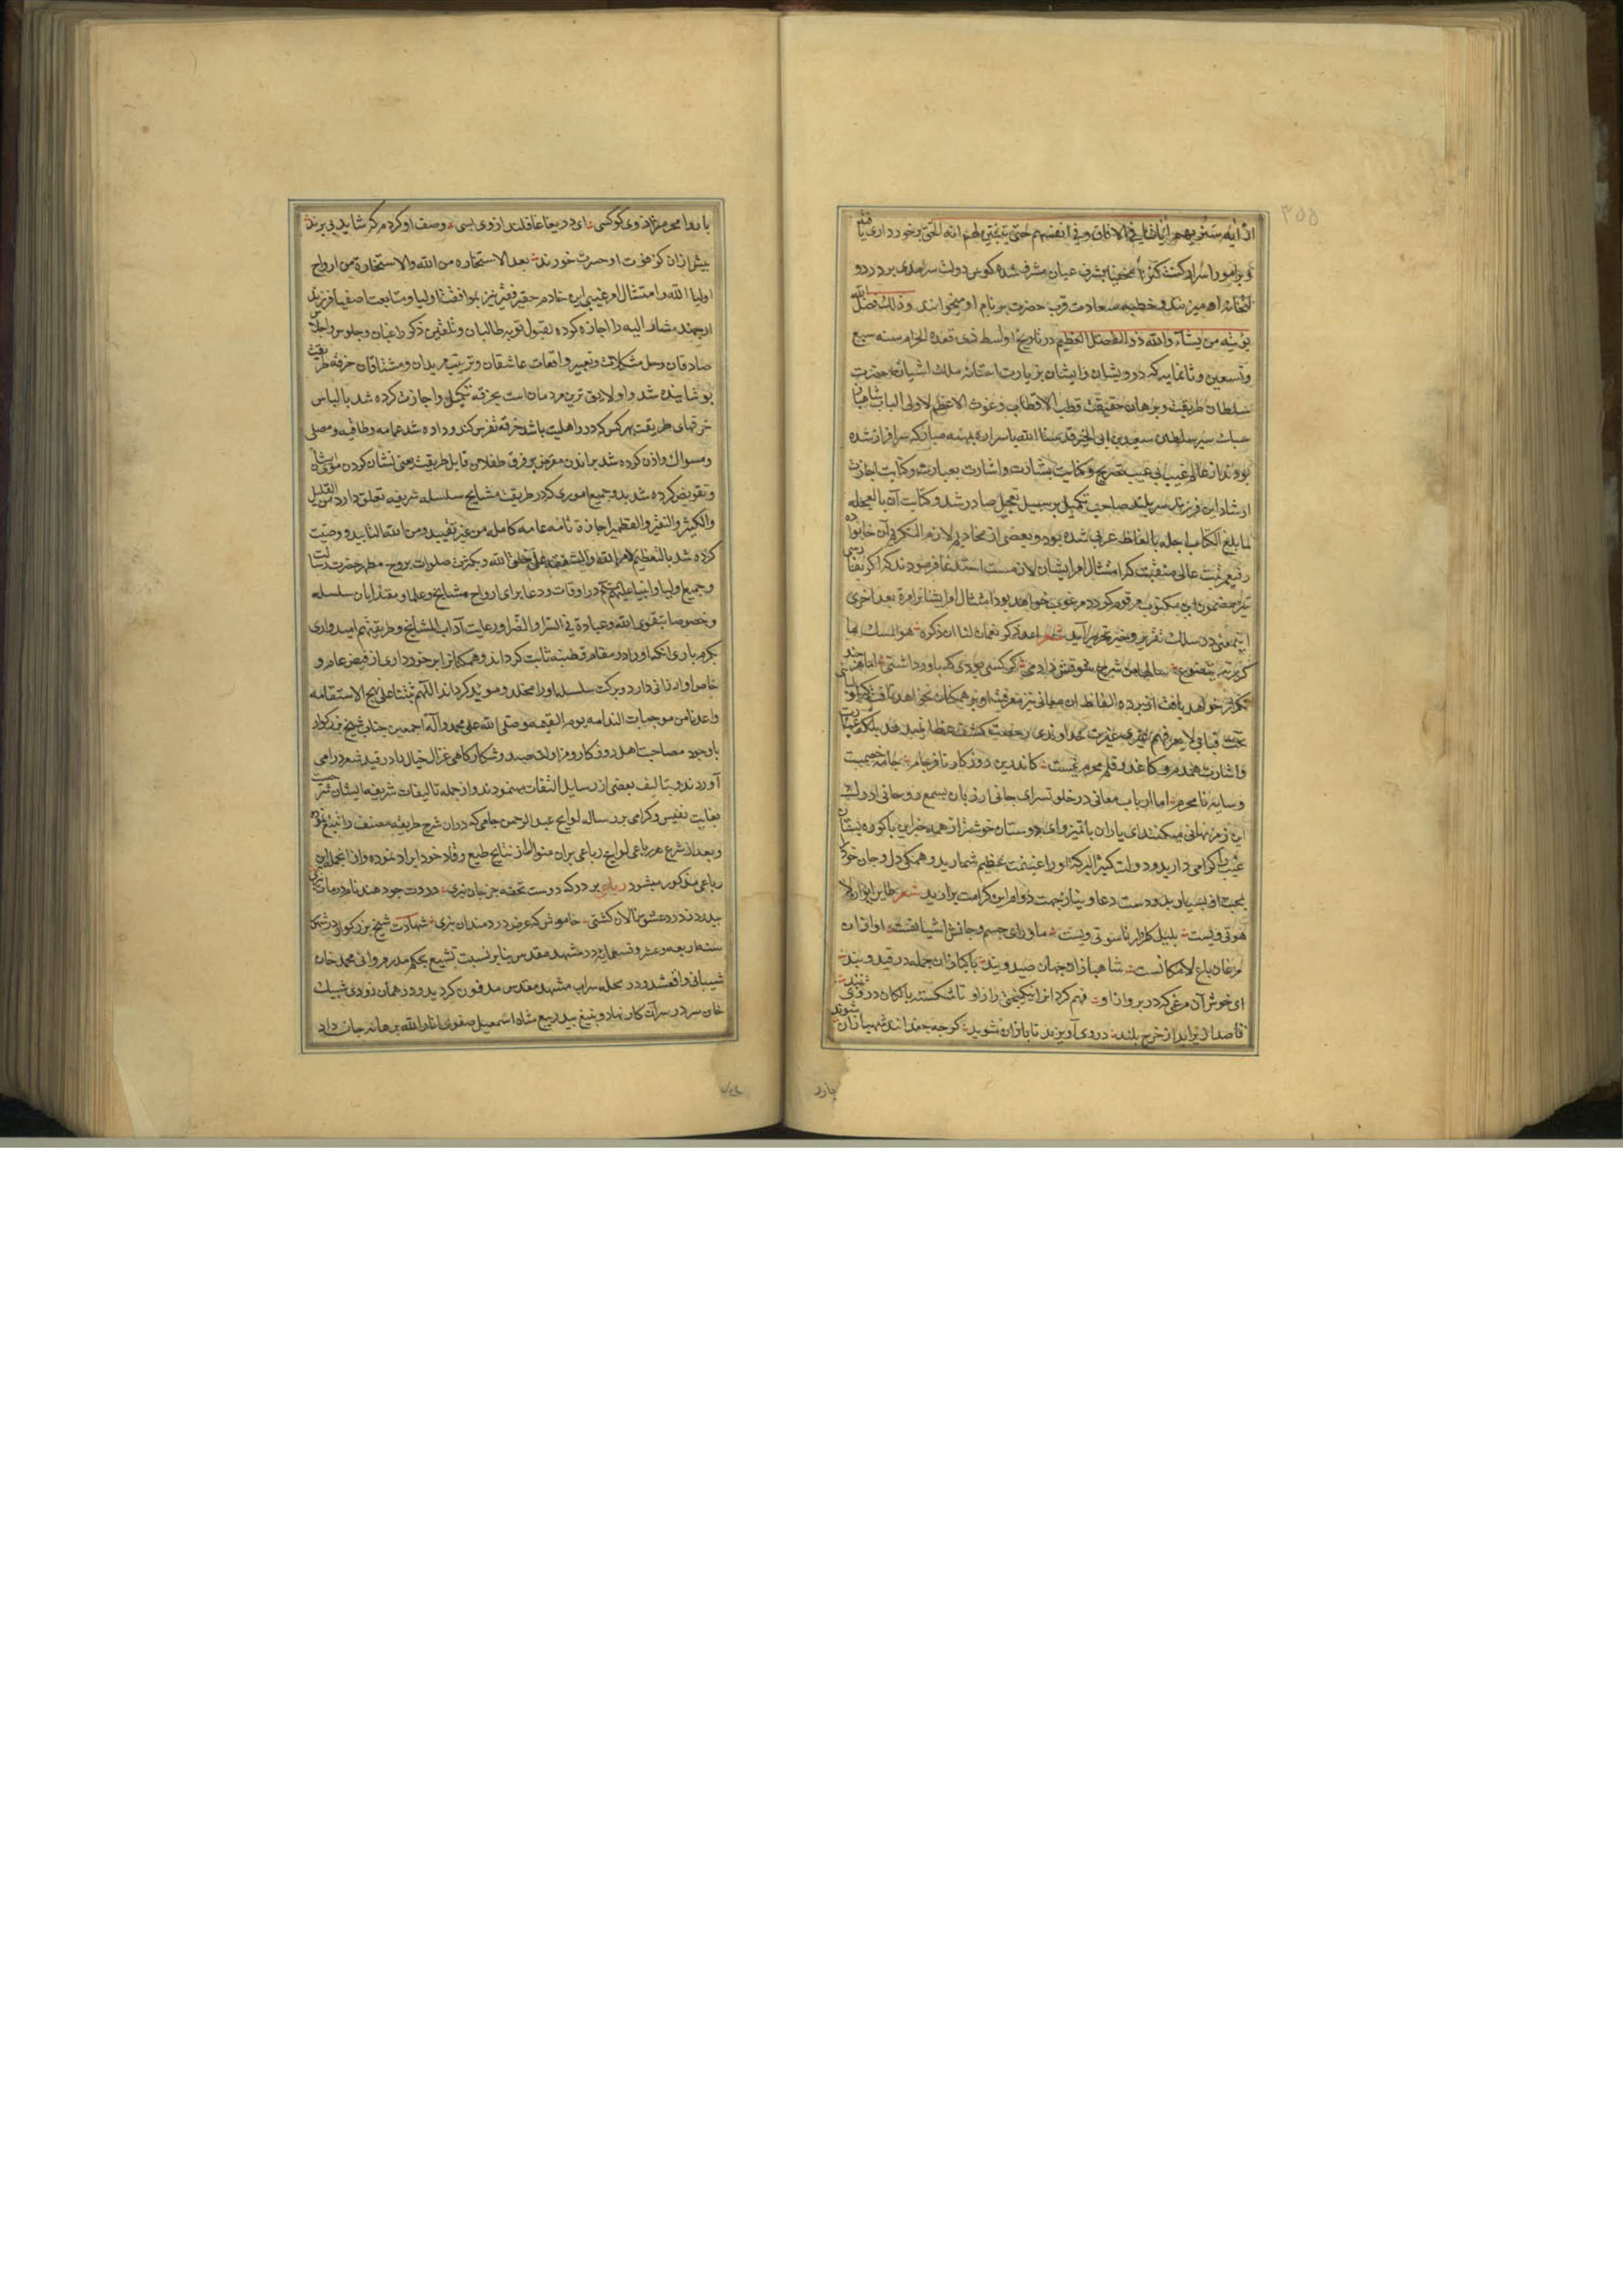 از آیه سنریهم آیاتنا فی الافاق وفی انفسهم حتی یتبین لهم انه الحق برخورداری یافته
و برامور اسرار کنت کنزا مخفیا بشرف عیان مشرف شده کوس دولت سرمدی بر در
او میزنند و خطبه سعادت قرب حضرت بر نام او میخوانند وذلك فضل الله
یؤتیه من یشآء والله ذو الفضل العظیم در تاریخ اواسط ذی قعده الحرام سنه سبع
وتسعین وثمانمایه که درویشان را ایشان بزیارت آستانه ملك اشیان حضرت
سلطان طریقت وبرهان حقیقت قطب الاقطاب وغوث الاعظم لاولی الالباب
سعید بن ابی الخیر قدسنا الله باسراره مبارکه سرافراز شده
بودند از عالم غیب بی عیب بتصریح وکنایت بشارت واشارت بعبارت وکتابت اجازت
ارشاد این فرزند سربلند صاحب تکمیل بر سبیل تعجیل صادر شد وکتابت آن بالعجاله
لما بلغ الکتاب اجله بالفاظ عربی شده بود وبعضی از مخادیم لازم التکریم آن
رفیع مرتبت عالی منقبت که امتثال امر ایشان لازمست استدعا فرمودند که اگر
مضمون این مکتوب مرقوم کردد مرغوب خواهد بود امتثال امر ایشان را مرة بعد اخری
این معنی در سلك تقریر وحیز تحریر آید شعر اعد ذکر نعمان لنا ان ذکره هو المسك ما
کررته یتضوع سالها من شرح شوقش دادمی کر کسی بودی که باور داشتی
تکرار خواهد یافت از پرده الفاظ آن معانی نیز معرفت او بر همکنان نخواهد تافت
تحت قبابی لا یعرفهم غیری غیرت خداوندی رخصت کشف غطا نمیدهد بلکه
واشارت همدم وکاغذ وقلم محرم نیست کاندرین روزکار نافرجام جامه خصمیست
وسایه نامحرم اما ارباب معانی در خلوتسرای جانی از زبان بسمع روحانی ادراك
این رمز نهانی میکنند ای یاران باتمیز وای دوستان خوشتر از همه چیز این باکوره بستان
غیب را کرامی دارید ودولت کثیر البرکة او را غنیمت عظیم شمارید وهمکی دل وجان خود را
بمحبت او بسپارید ودست دعا ونیاز بجهت دوام این کرامت برآرید شعر طایر ایوان لا
هوتی ویست بلبل کلزار ناسوتی ویست ماورای جسم وجانش اشیانست او از آن
مرغان باغ لامکانست شاهبازان جهان صید ویند پاکبازان جمله در قید ویند
ای خوش آن مرغی که در پرواز او فهم کرد از نیکبختی راز او تا شکسته بالکان در وی
قاصدان از چرخ بلند در وی آویزند تا بازان شوند کرچه جغدانند شهبازان شوند
یارد
با روا محرم راز وی کو کسی ای دریغا غافلند از وی بسی وصف او کردم مکر شاید پی برند
پیش از آن کز فوت او حسرت خورند بعد الاستخاره من الله والاستخارة من ارواح
اولیا الله وامتثال امر غیبی این خادم حقیر فقیر نیز بموافقت اولیا ومتابعت اصفیا فرزند
ارجمند مشار الیه را اجازه کرده بقبول توبه طالبان وتلقین ذکر راغبان وجلوس واجلاس
صادقان وحل مشکلات وتعبیر واقعات عاشقان وتربیت مریدان ومشتاقان خرقه طریقت
پوشانیده شد واو لایق ترین مردمان است بخرقه تبرك واجازت کرده شد بالباس
خرقهای طریقت بهر کس که در او اهلیت باشد خرقه تفرس کند وداده شد عمامه وطاقیه ومصلی
ومسواك واذن کرده شد براندن مقراض بر فرق طفلان قابل طریقت یعنی نشان کردن موی ایشان
وتفویض کرده شد بدو جمیع اموری که در طریقت مشایخ سلسله شریفه تعلق دارد من القلیل
والکثیر والنقیر والقطمیر اجازة تامه عامه کامله من غیر تقیید ومن الله التایید ووصیت
کرده شد بالتعظیم لامر الله والشفقه علی خلق الله وبکثرت صلوات بروح مطهر حضرت رسالت
وجمیع اولیا وانبیا علیهم در اوقات ودعا برای ارواح مشایخ وعلما ومقتدایان سلسله
وخصوصا بتقوی الله وعبادة فی السرا والضرا ورعایت آداب المشایخ وطریقتهم امیدواری
بکرم باری آنکه او را در مقام قطبیه ثابت کرداند وهمکنانرا برخورداری از فیض عام و
خاص او ارزانی دارد وبرکت سلسله او را مخلد ومؤید کرداند اللهم ثبتنا علی نهج الاستقامه
واعذنا من موجبات الندامه یوم القیمه وصلی الله علی محمد وآله اجمعین جناب شیخ بزرکوار
باوجود مصاحبت اهل روزکار ومزاولت صید وشکار کاهی غزال خیال را در قید شعر درمی
آوردند وبتالیف بعضی از رسایل التفات مینمودند واز جمله تالیفات شریفه ایشان شرحیست
بغایت نفیس وکرامی بر رساله لوایح عبد الرحمن جامی که در آن شرح طریقه مصنف را تتبع نموده
وبعد از شرح هر رباعی لوایح رباعی بر آن منوال از نتایج طبع وقاد خود ایراد نموده واز آنجمله این
رباعی مذکور میشود رباعی بر درکه دوست تحفه جز جان نبری دردت چو دهند نام درمان نبری
بیدرد ز درد عشق نالان کشتی خاموش که عرض دردمندان نبری شهادت شیخ بزرکوار در شهور
سنه اربعه وعشر وتسعمایه در مشهد مقدس بنابر نسبت تشیع بحکم مدرم روانی محمد خان
شیبانی واقع شد ودر محله سراب مشهد مقدس مدفون کردید ودر همان زودی شیبك
خان سر در سر آن کار نهاد وبتیغ بیدریغ شاه اسمعیل صفوی انار الله برهانه جان داد